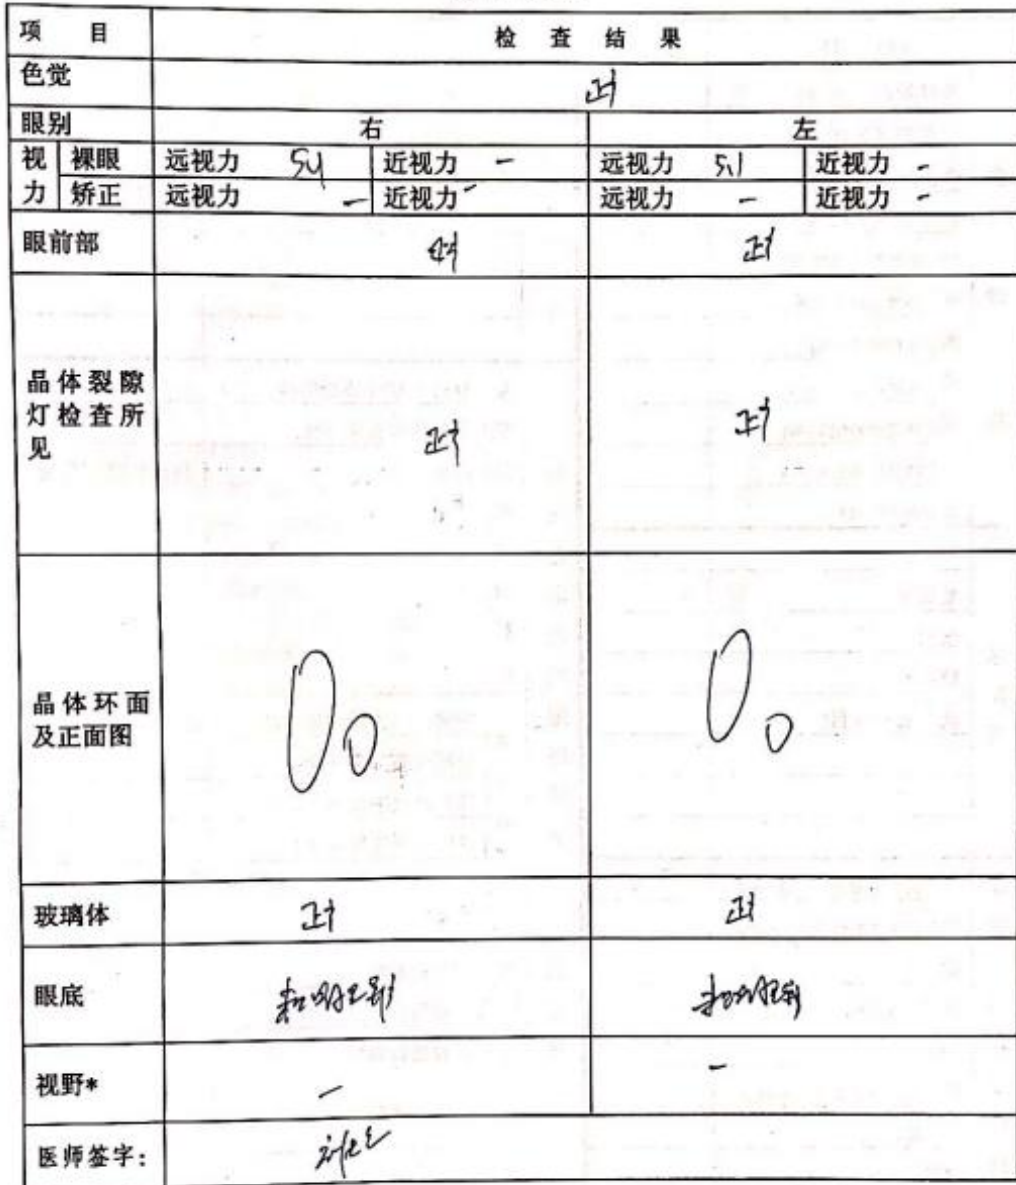 项 目 检 查 结 果
色觉 正常
眼别 右 左
视力 裸眼 远视力 5.1 近视力 - 远视力 5.1 近视力 -
矫正 远视力 - 近视力 - 远视力 - 近视力 -
眼前部 正常 正常
晶体裂隙
灯检查所
见 正常 正常
晶体环面
及正面图
玻璃体 正常 正常
眼底 未见明显异常 未见明显异常
视野* - -
医师签字: